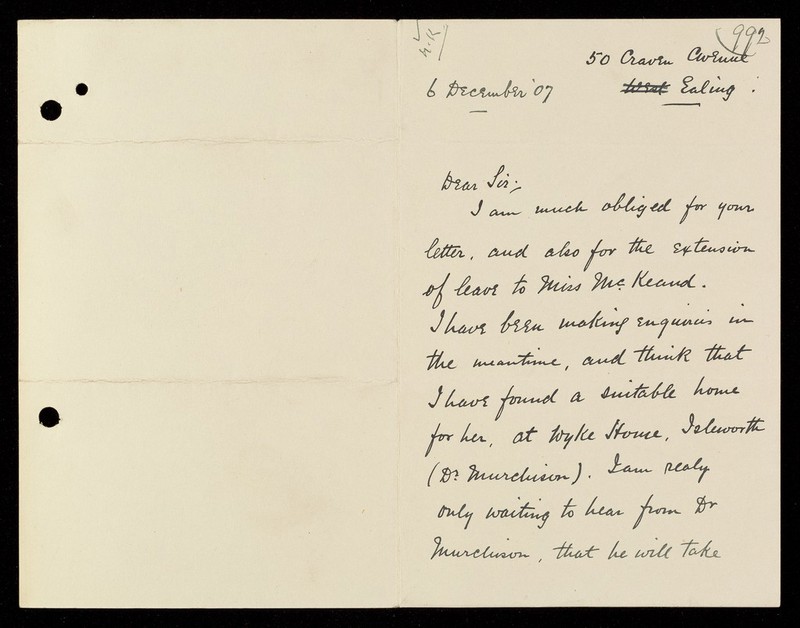 992
E.K
50 Craven Avenue
West Ealing.
6 December '07
Dear Sir;
I am much obliged for your
letter, and also for the extension
of leave to Miss McKeand.
I have been making enquiries in
the meantime, and think that
I have found a suitable home
for her, at Wyke House, Isleworth
(Dr Murchison). I am realy
only waiting to hear from Dr
Murchison, that he will take